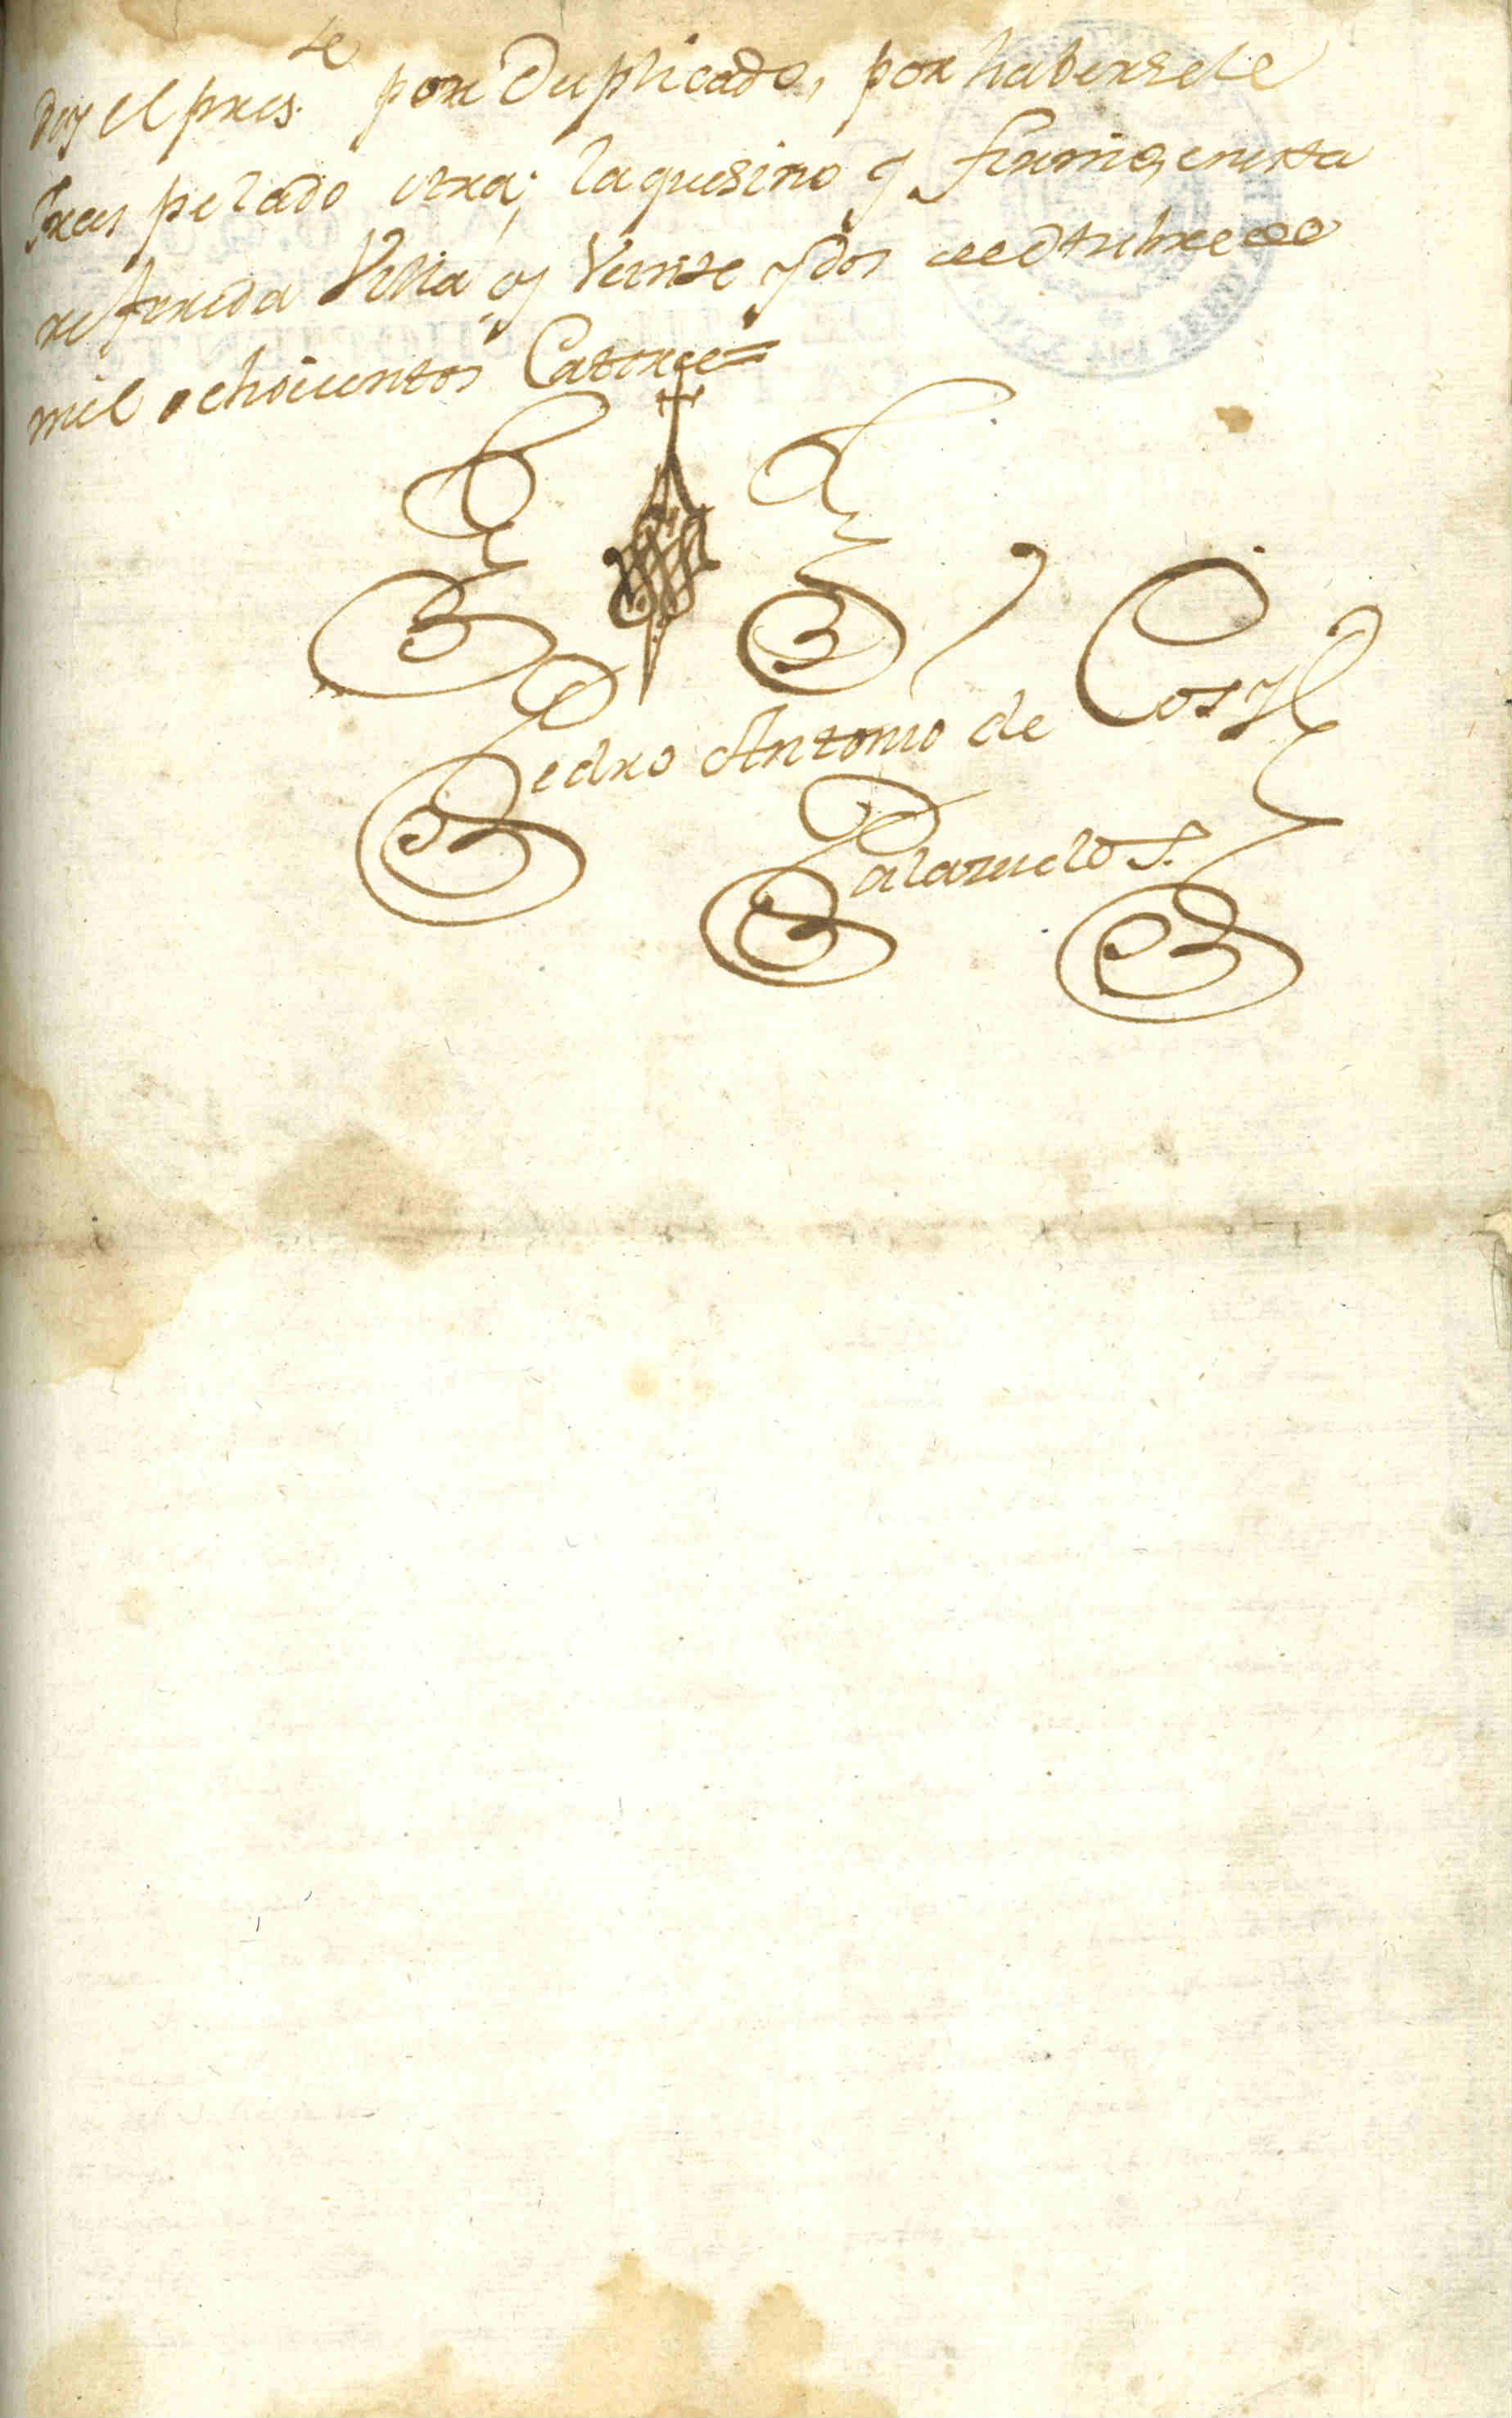 doy el pres.te por Duplicado, por habersele
Tras pelado otra; la que sino y firmo, en esta
referida Villa oy Veinte y dos de Otubre de
mil ochocientos Catorce=
Pedro Antonio de Cos y
Palazuelos.